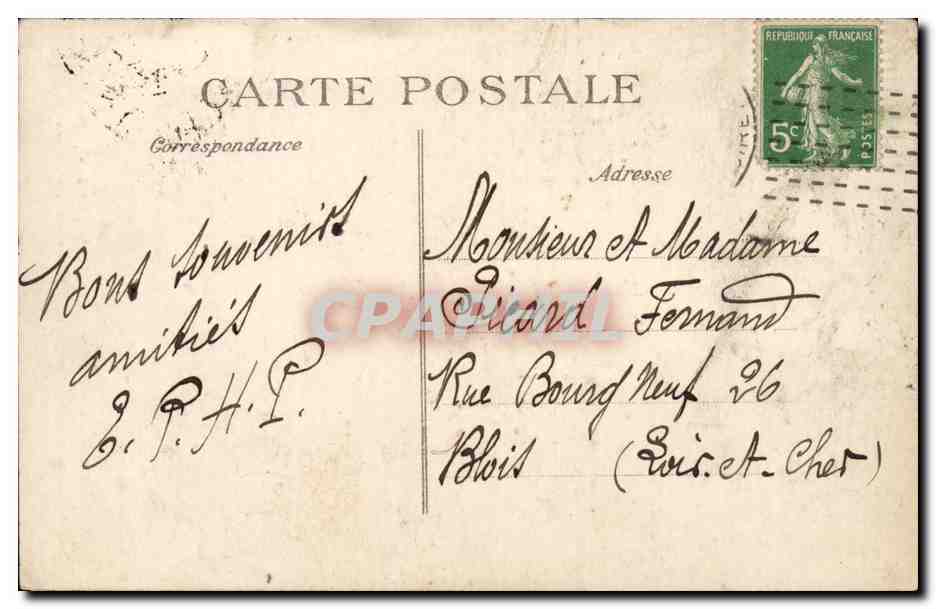 CARTE POSTALE
Correspondance
Adresse
REPUBLIQUE FRANÇAISE
5c
POSTES
OIRE
Bons souvenirs
amitiés
E. P. H. P.
Monsieur et Madame
Picard Fernand
Rue Bourg Neuf 26
Blois (Loir-et-Cher)
CPAPHIL